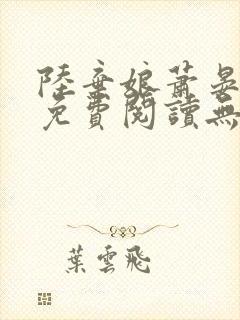 陸棄娘蕭晏
免費閱讀無
葉雲飛